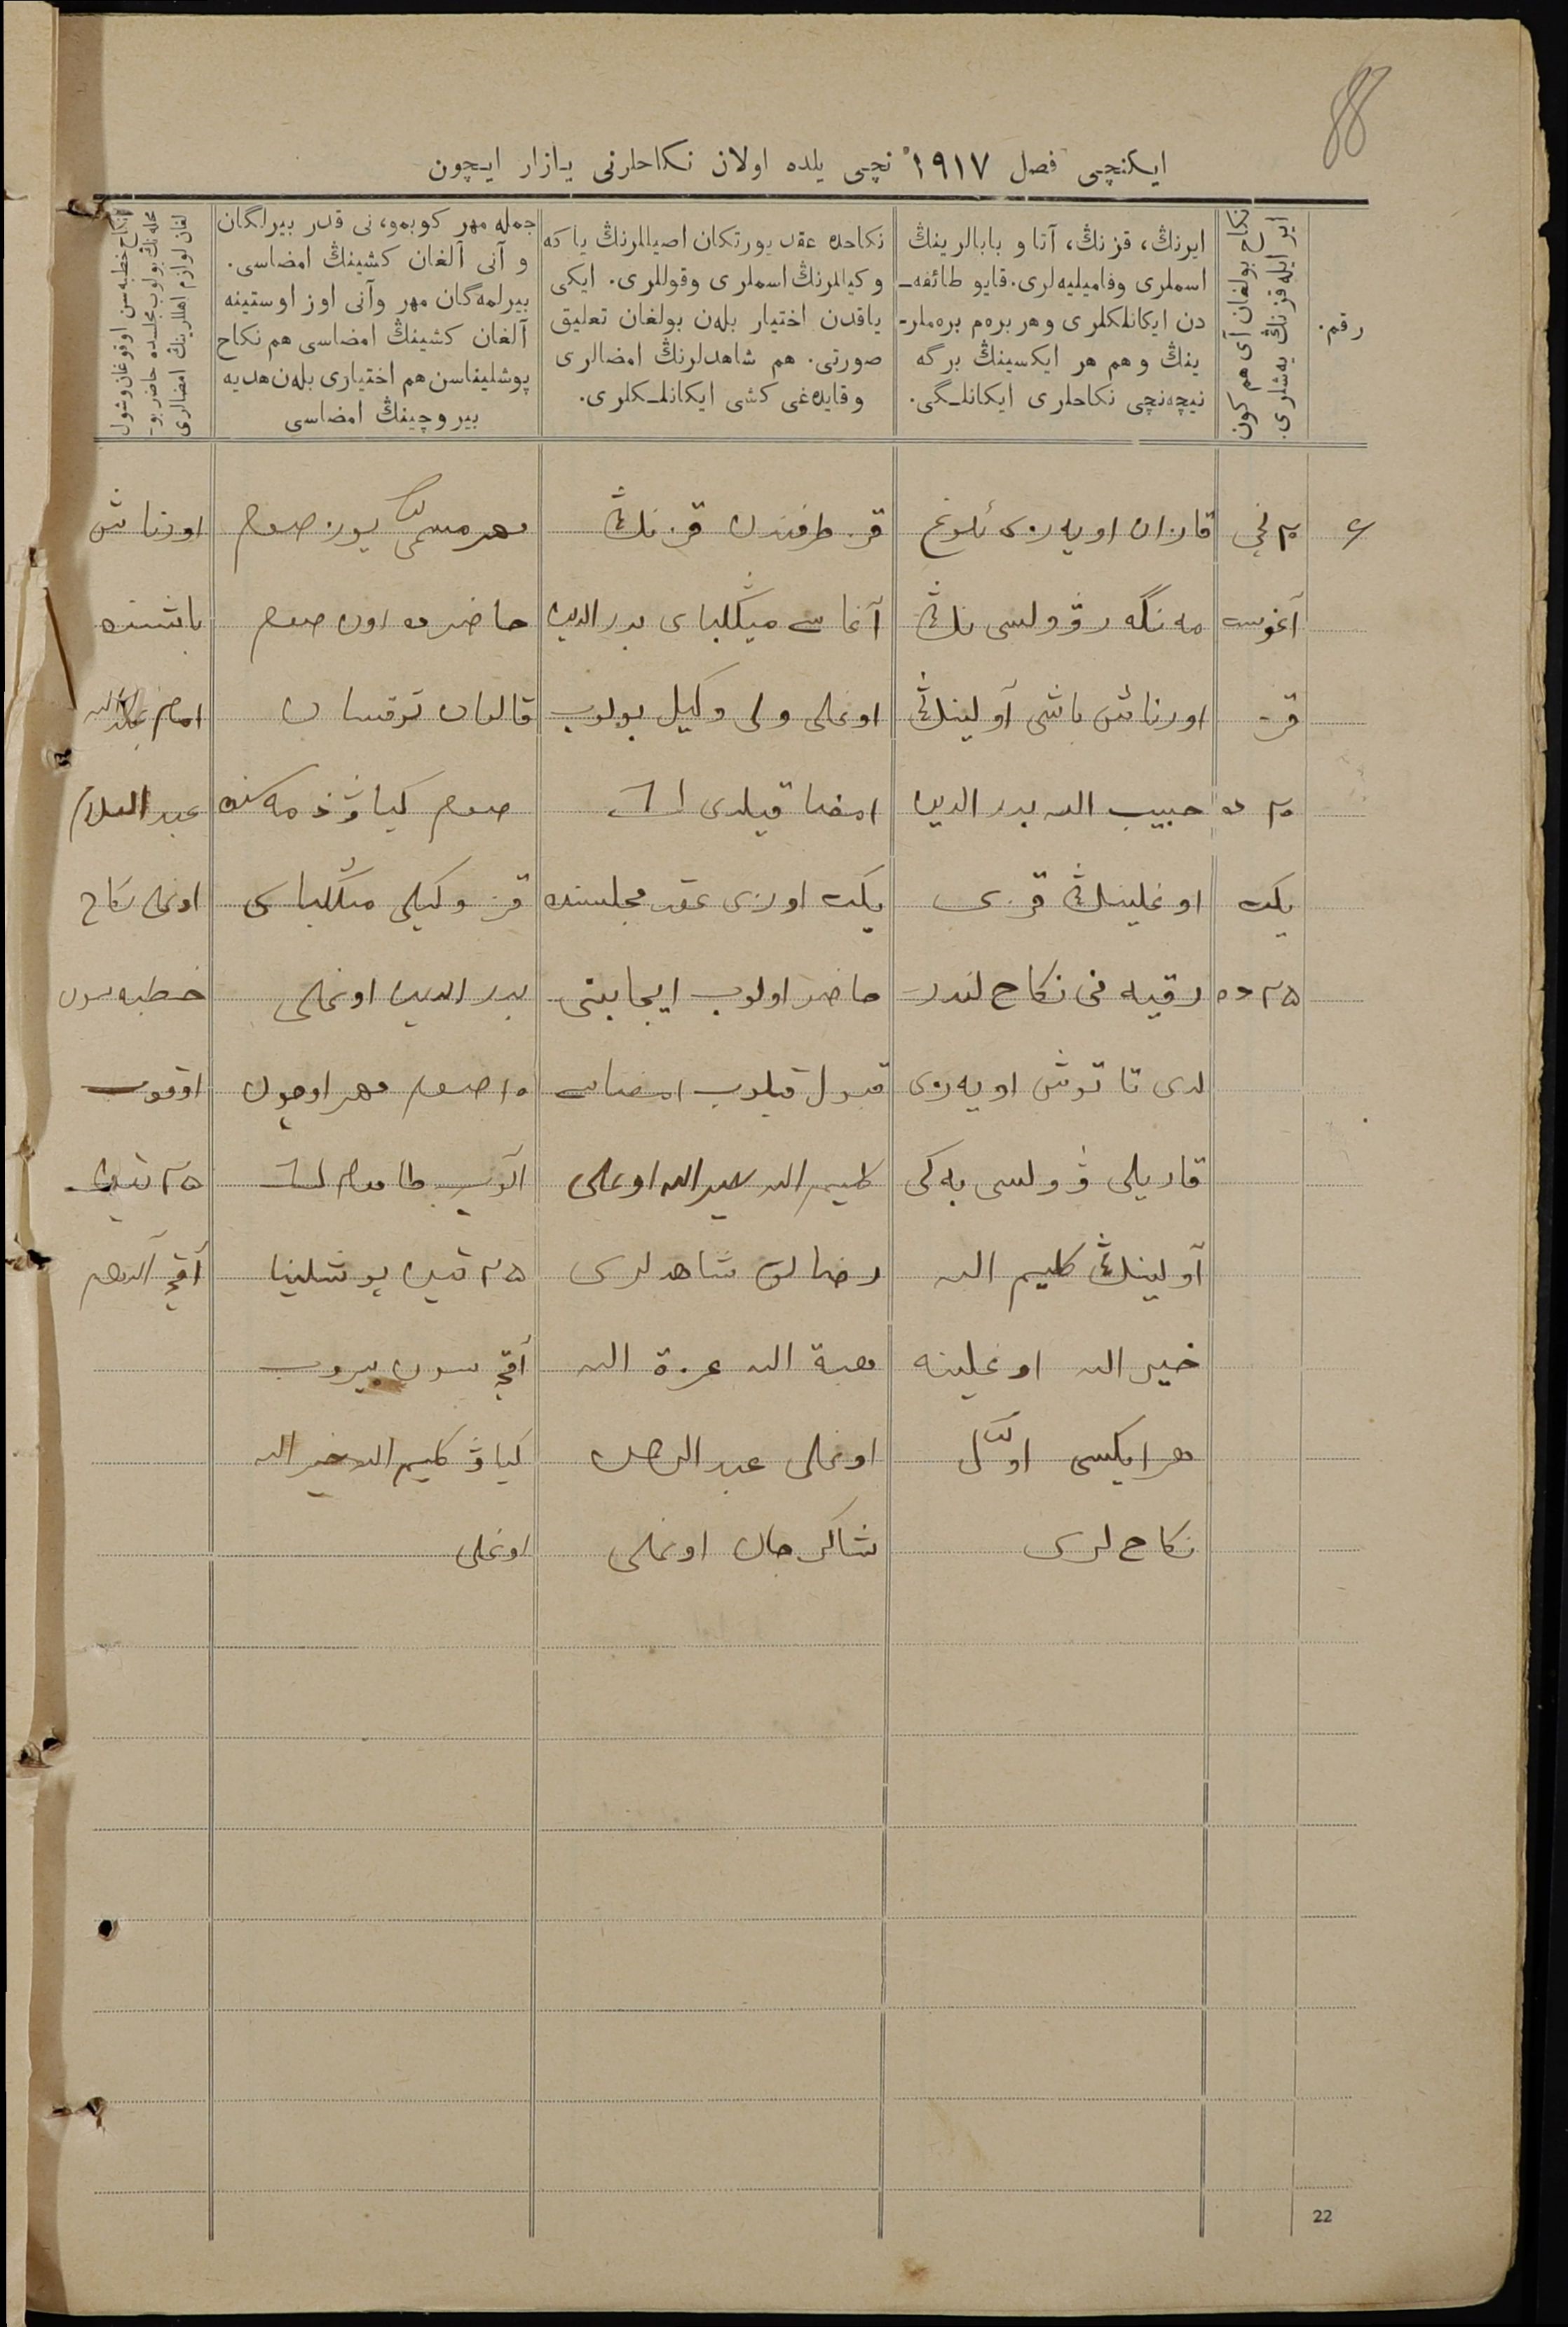 88
ایکنچی فصل ١٩١٧ نچی یلده اولان نکاحلرنی یازار ایچون
رقم.
نکاح بولغان آی هم کون
ایر ایله قزنڭ یەشلری.
ایرنڭ، قزنڭ، آتا و بابالرینڭ
اسملری وفامیلیەلری. قایو طائفه‌ـ
دن ایکانلکلری وهر برەم برەملرـ
ینڭ وهم هر ایکسینڭ برگه
نیچەنچی نکاحلری ایکانلـگی.
نکاحده عقد یورتکان اصیللرنڭ یا که
وکیللرنڭ اسملری وقوللری. ایکی
یاقدن اختیار بلەن بولغان تعلیق
صورتی. هم شاهدلرنڭ امضالری
وقایدەغی کشی ایکانلـکلری.
جمله مهر کوبمو، نی قدر بیرلگان
و آنی آلغان کشینڭ امضاسی.
بیرلمەگان مهر وآنی اوز اوستینه
آلغان کشینڭ امضاسی هم نکاح
پوشلیناسن هم اختیاری بلەن هدیه
بیروچینڭ امضاسی
نکاح خطبه‌سن اوقوغان وشول
محله‌نڭ بولوب مجلسده حاضر بوـ
لغان لوازم اهللرینڭ امضالری
٢ نچی
آغوست
قز
٢٠ ده
یکت
٢٥ ده
قازان اویەزی
مەنگەر وولسی نڭ
اورناش باشی آولینڭ
حبیب الله بدر الدین
اوغلینڭ قزی
رقیه نی نکاح لندر
لدی تاتوش اویەزی
قاریلی وولسی بەکی
آولینڭ کلیم الله
خیر الله اوغلینه
هر ایکسی اوّل
نکاح لری
قز طرفندن قز نڭ
آغاسی میڭلبای بدر الدین
اوغلی ولی وکیل بولوب
امضا قیلدی
یکت اوزی عقد مجلسنده
حاضر اولوب ایجابنی
قبول قیلوب امضاسی
کلیم الله خیر الله اوغلی
رضالق شاهدلری
هبة الله عزة الله
اوغلی عبد الرحمن
شاکرجان اوغلی
مهر مسمی یوز صوم
حاضرده اون صوم
قالغان توقسان
صوم کیاو ذمه سنده
قز وکیلی میڭلبای
بدر الدین اوغلی
١٠ صوم مهر اوچون
٢٥ تین پوشلینا
آقچه سون بیروب
کیاو کلیم الله خیر الله
اوغلی
اورناش
باشنده
امام
عبد السلام
اوغلی نکاح
خطبه سون
اوقوب
٢٥ تین
آقچه آلدم
22